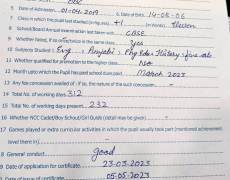 OBC
5 Date of Admission 01-04-2019 6. Date of Birth 14-06-06
7 Class in which the pupil last studied (in figures) +1 (in words) Eleven
8 School/Board Annual examination last taken with CBSE
9 Whether failed, if so once/twice in the same class Yes
10 Subjects Studied 1. Eng, Punjabi, Phy Edu History, fine arts
11 Whether qualified for promotion to the higher class No
12 Month upto which the Pupil has paid school dues March 2023
13 Any fee concession availed of: if so, the nature of such concession
14 Total No. of working days 312
15 Total No. of working days present 232
16 Whether NCC Cadet/Boy Scout/Girl Guide (detail may be given)
17 Games played or extra curricular activities in which the pupil usually took part (mentioned achievement
level there in)
18 General conduct good
19 Date of application for certificate 23-03-2023
Date of issue of certificate 05-05-2023